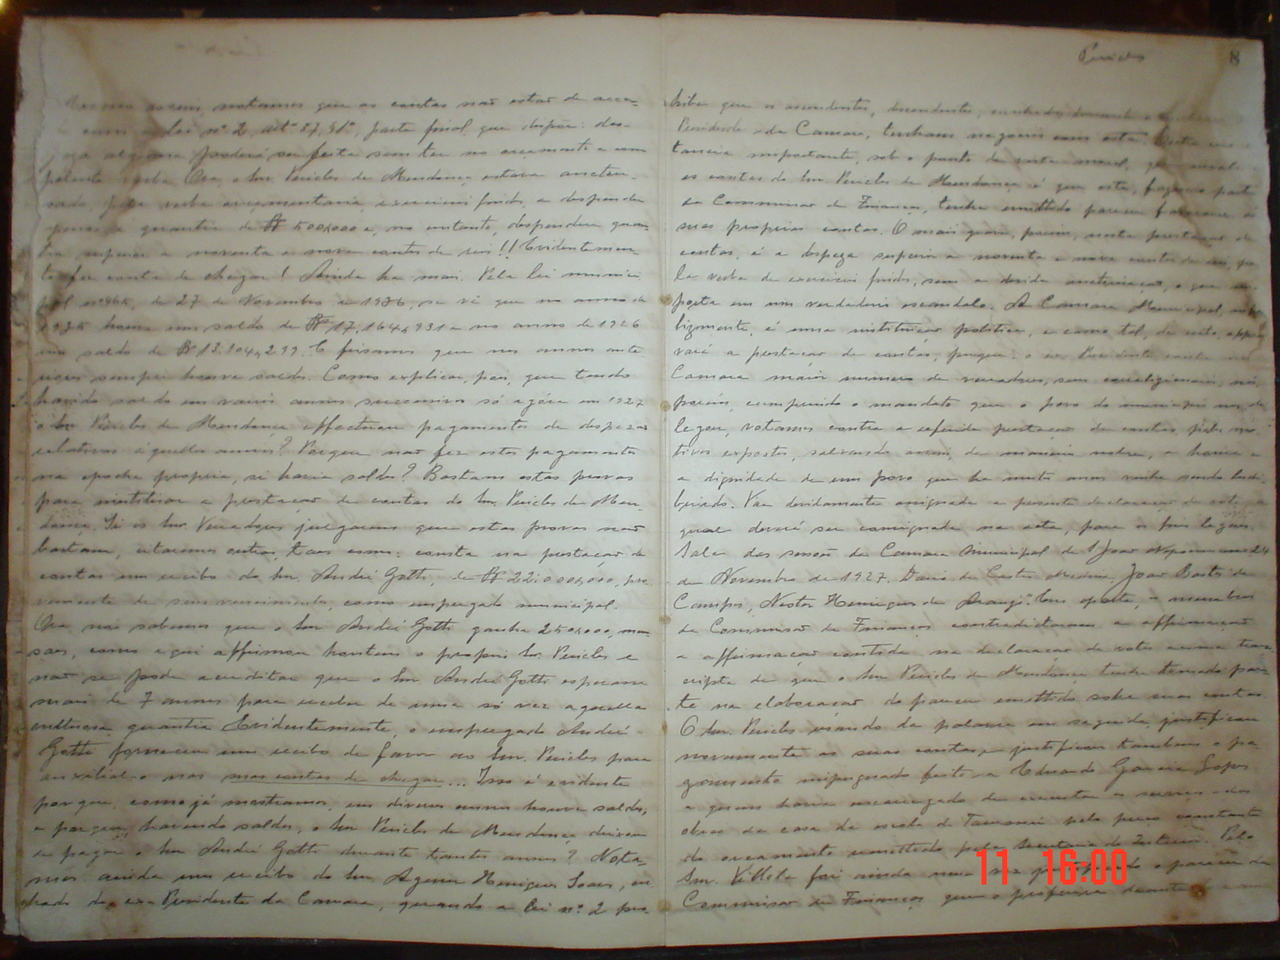 notamos que as contas não estão de acco-
lei nº 2, artº 57, § 1º, parte final, que dispõe: des-
alguma poderá ser feita sem ter no orçamento a com
petente verba. Ora, o Snr. Pericles de Mendonça estava aucto-
sado, pela verba orçamentaria exercicios findos, a despender
apenas a quantia de 500\000 e, no entanto, despendeu quan-
tia superior a noventa e nove contos de reis!! Evidentemen-
te fez conta de chegar! Ainda ha mais. Pela lei munici-
pal nº de 27 de Novembro de 1926, se vê que no anno de
1925 houve um saldo de 17,164,931 e no anno de 1926
um saldo de 13.104,299. E
sempre houve saldo. Como explicar, pois, que tendo
havido saldo em varios annos successivos só agóra em 1927
o Snr. Pericles de Mendonça effectuou pagamentos de despezas
relativas áquelles annos? Porque não fez estes pagamentos
na epocha propria, si havia saldo? Bastam estas provas
para a prestação de contas do Snr. Pericles de Men-
donça. Si os Snr. Vereadores julgarem que estas provas não
bastam, citaremos outras, taes como: consta na prestação de
contas um recibo do Snr. André Gotti de 22:000\000, pro
veniente de seus vencimentos, como empregado municipal.
Ora nós sabemos que o Snr. André Gotti ganha 250\000, men
saes, como aqui affirmou hontem o proprio Snr. Pericles e
não se pode acreditar que o Snr. André Gotti esperasse
mais de 7 annos para receber de uma só vez aquella
quantia. Evidentemente, o empregado André
Gotti forneceu um recibo de favor ao Snr. Pericles para
auxilial-o nas suas contas de chegar... Isso é evidente
porque, como já mostramos, em diversos annos houve saldos,
e porque, havendo saldos, o Snr. Pericles de Mendonça deixou
de pagar o Snr. André Gotti durante tantos annos? Nota-
mos ainda um recibo do Snr. Agenor Henriques Soares, cu
nhado do ex-Presidente da Camara, quando a lei nº 2 pro-
Pericles
8
hibe que os ascendentes, descendentes, cunhados
Presidente da Camara, tenham negocios com esta. Outra circ
tancia importante, sob o ponto de vista moral, que
as contas do Snr. Pericles de Mendonça é que este, fazendo parte
da Commissão de Finanças, tenha emittido parecer favoravel ás
suas proprias contas. O mais grave, porém, nesta prestação de
contas, é a despeza superior a noventa e nove contos de reis, pe
la verba de exercicios findos, sem a devida auctorisação, o que im-
porta em um verdadeiro escandalo. A Camara Municipal, infe
lizmente, é uma instituição politica, e como tal, de certo, appro
vará a prestação de contas, porque o ex-Presidente conta na
Camara maior numero de vereadores, seus correligionarios, nós,
porém, cumprindo o mandato que o povo do municipio nos de
legou, votamos contra a referida prestação de contas, pelos mo-
tivos expostos, salvando assim, de maneira nobre, a honra e
a dignidade de um povo que ha muito annos vinha sendo ludi-
briado. Vae devidamente assignada a presente declaração de voto, a
qual deverá ser consignada na acta, para os fins legaes.
Sala das sessões da Camara Municipal de S. João Nepomuceno 24
de Novembro de 1927. Dario de Castro Medina, João Bastos de
Campos, Nestor Henriques de Araujo. Em aparte, os membros
da Commissão de Finanças contradictaram a affirmação
a affirmação contida na declaração de votos acima tran
scripta de que o Snr. Pericles de Mendonça tenha tomado par-
te na elaboração do parecer emittido sobre suas contas.
O Snr. Pericles usando da palavra em seguida, justificou
novamente as suas contas, e justificou tambem o pa-
gamento impugnado feito a Eduardo Gomes Lopes
a quem havia encarregado de executar os das
obras da casa da escola de Taruassú pelo preço constante
do orçamento emittido pela Secretaria do Interior. Pelo
Snr. Villela foi ainda uma vez o parecer da
Commissão de Finanças que o
11 16:00